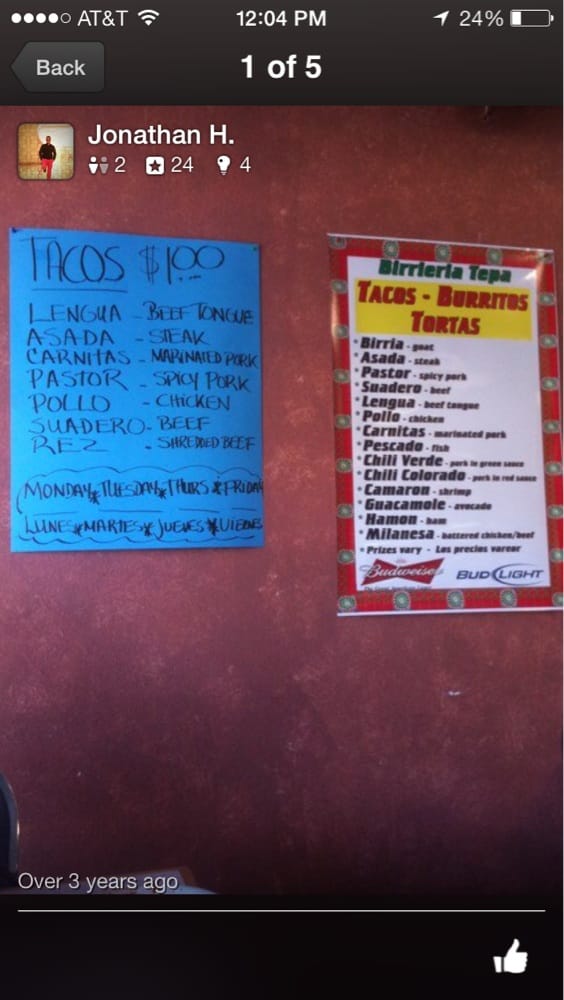 AT&T 12:04 PM 24%
Back
1 of 5
Jonathan H.
2 24 4
TACOS $1.00
LENGUA - BEEF TONGUE
ASADA - STEAK
CARNITAS - MARINATED PORK
PASTOR - SPICY PORK
POLLO - CHICKEN
SUADERO - BEEF
REZ - SHREDDED BEEF
MONDAY*TUESDAY*THURS*FRIDAY
LUNES*MARTES*JUEVES*VIERNES
Birrieria Tepa
TACOS - BURRITOS
TORTAS
* Birria - goat
* Asada - steak
* Pastor - spicy pork
* Suadero - beef
* Lengua - beef tongue
* Pollo - chicken
* Carnitas - marinated pork
* Pescado - fish
* Chili Verde - pork in green sauce
* Chili Colorado - pork in red sauce
* Camaron - shrimp
* Guacamole - avocado
* Hamon - ham
* Milanesa - battered chicken/beef
* Prizes vary - Los precios varear
Budweiser
BUD LIGHT
Over 3 years ago